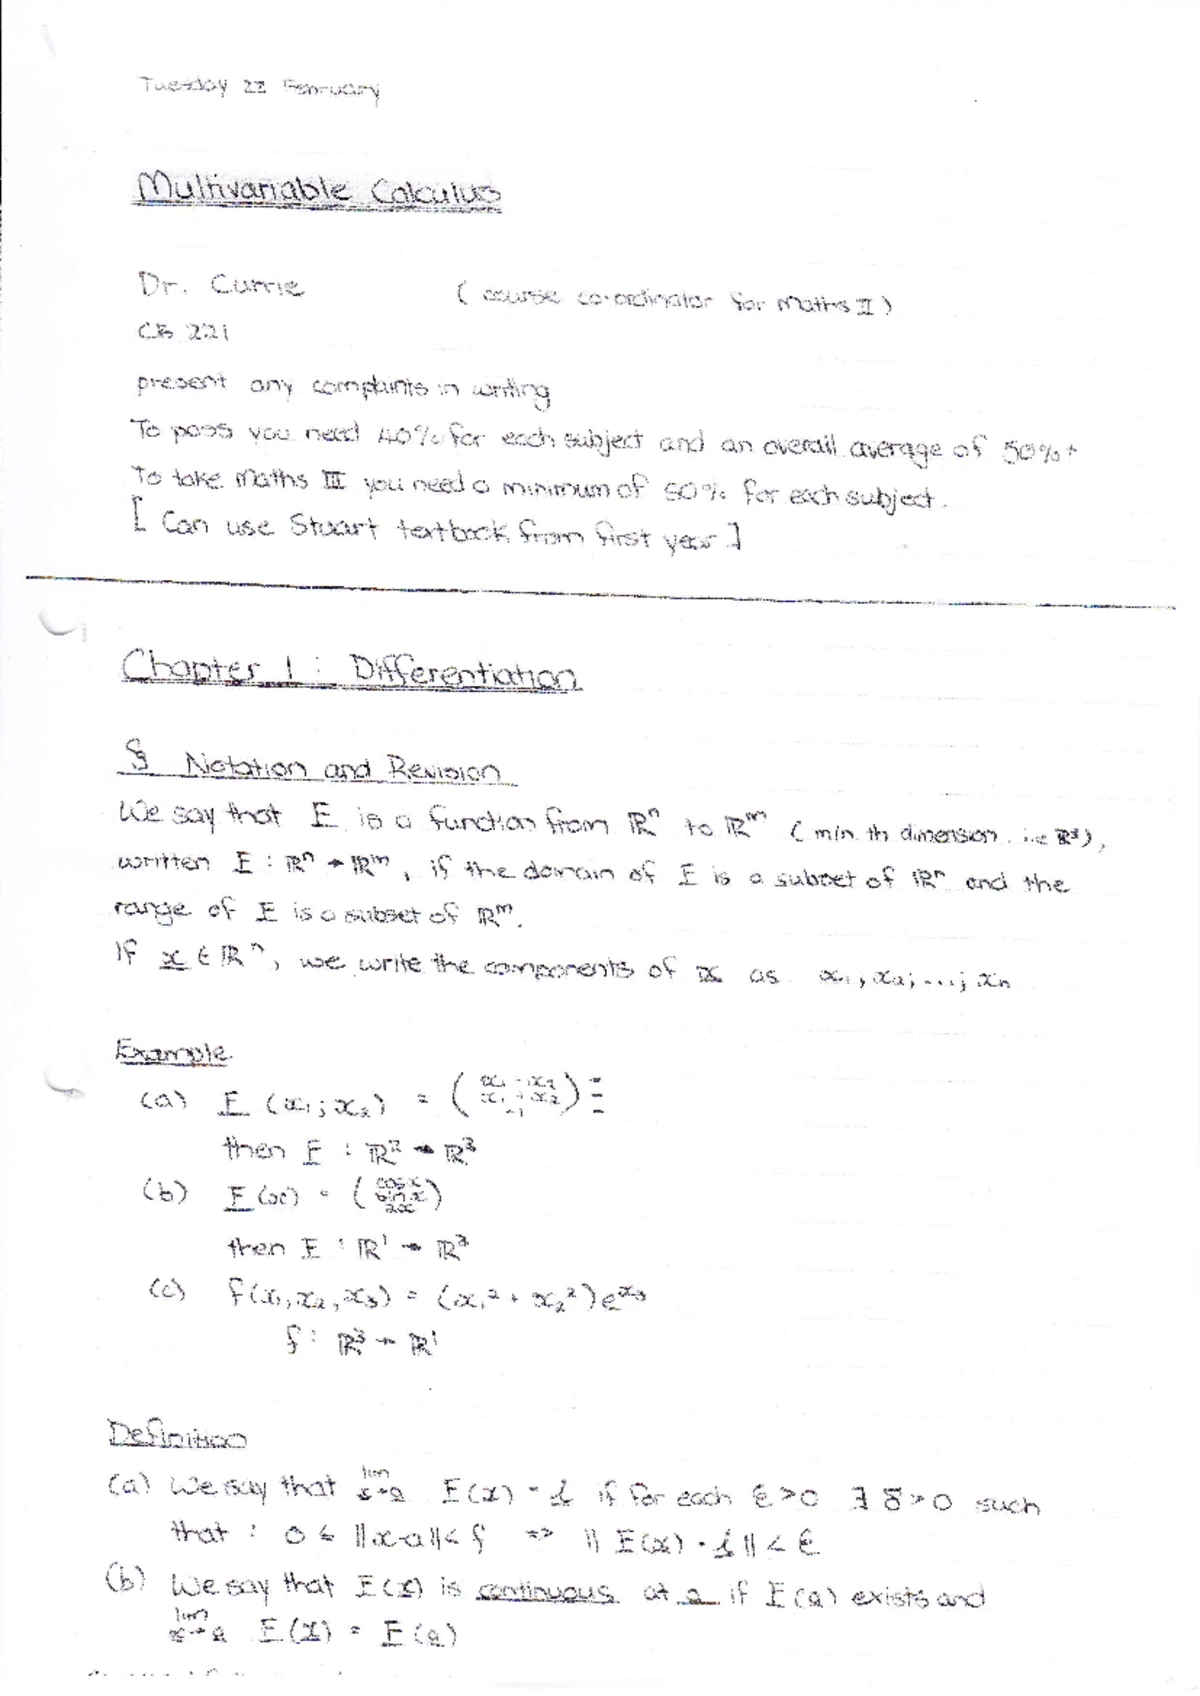 Tuesday 22 February
Multivariable Calculus
Dr. Currie ( course co-ordinator for Maths II )
CB 221
present any complaints in writing
To pass you need 40% for each subject and an overall average of 50%+
To take Maths III you need a minimum of 50% for each subject.
[ Can use Stuart textbook from first year ]
Chapter 1 : Differentiation
§ Notation and Revision
We say that F is a function from ℝⁿ to ℝᵐ ( m in th dimension i.e ℝ³ ),
written F : ℝⁿ → ℝᵐ , if the domain of F is a subset of ℝⁿ and the
range of F is a subset of ℝᵐ.
If x ∈ ℝⁿ, we write the components of x as x₁, x₂; ...; xₙ
Example
(a) F (x₁; x₂) = ( x₁ - x₂
x₁ + x₂
-1 )
then F : ℝ² → ℝ³
(b) F (x) = ( cos x
sin x
2x )
then F : ℝ¹ → ℝ³
(c) f(x₁, x₂, x₃) = (x₁² + x₂²) e^x₃
f : ℝ³ → ℝ¹
Definition
(a) We say that lim x→a F(x) = l if for each ε > 0 ∃ δ > 0 such
that : 0 < ||x-a|| < δ => || F(x) - l || < ε
(b) We say that F(x) is continuous at a if F(a) exists and
lim x→a F(x) = F(a)